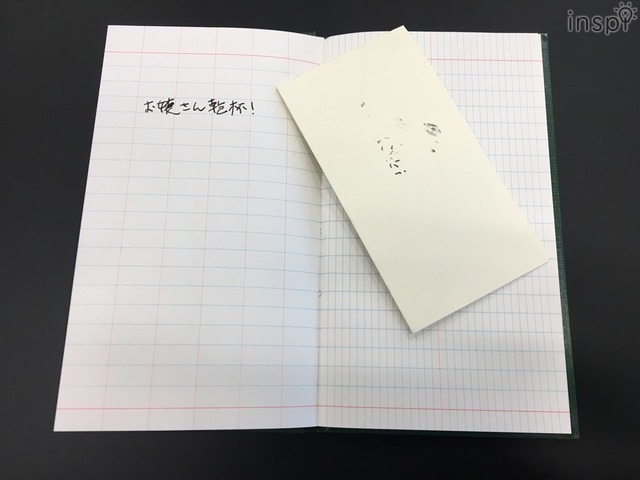 inspi
お嬢さん乾杯!